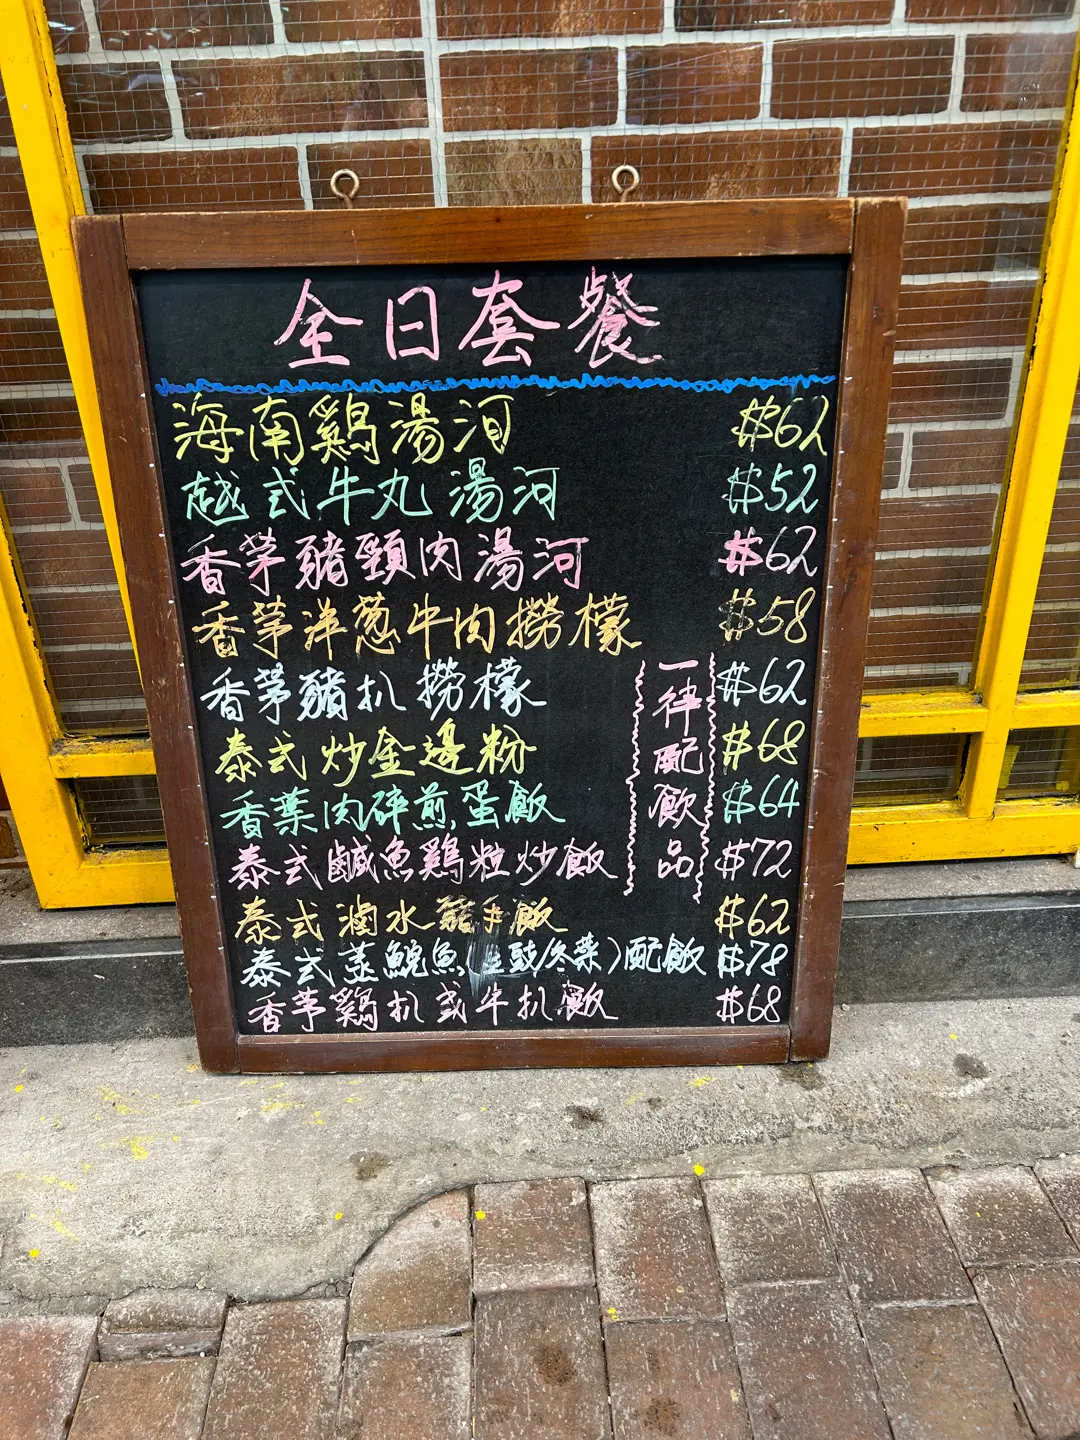 全日套餐
海南鷄湯河 $62
越式牛丸湯河 $52
香茅豬頸肉湯河 $62
香茅洋葱牛肉撈檬 $58
香茅豬扒撈檬 $62
泰式炒金邊粉 $68
香葉肉碎煎蛋飯 $64
泰式鹹魚鷄粒炒飯 $72
泰式滷水手飯 $62
泰式蒸鯇魚豉/冬菜)配飯 $78
香茅鷄扒或牛扒飯 $68
一律配飲品